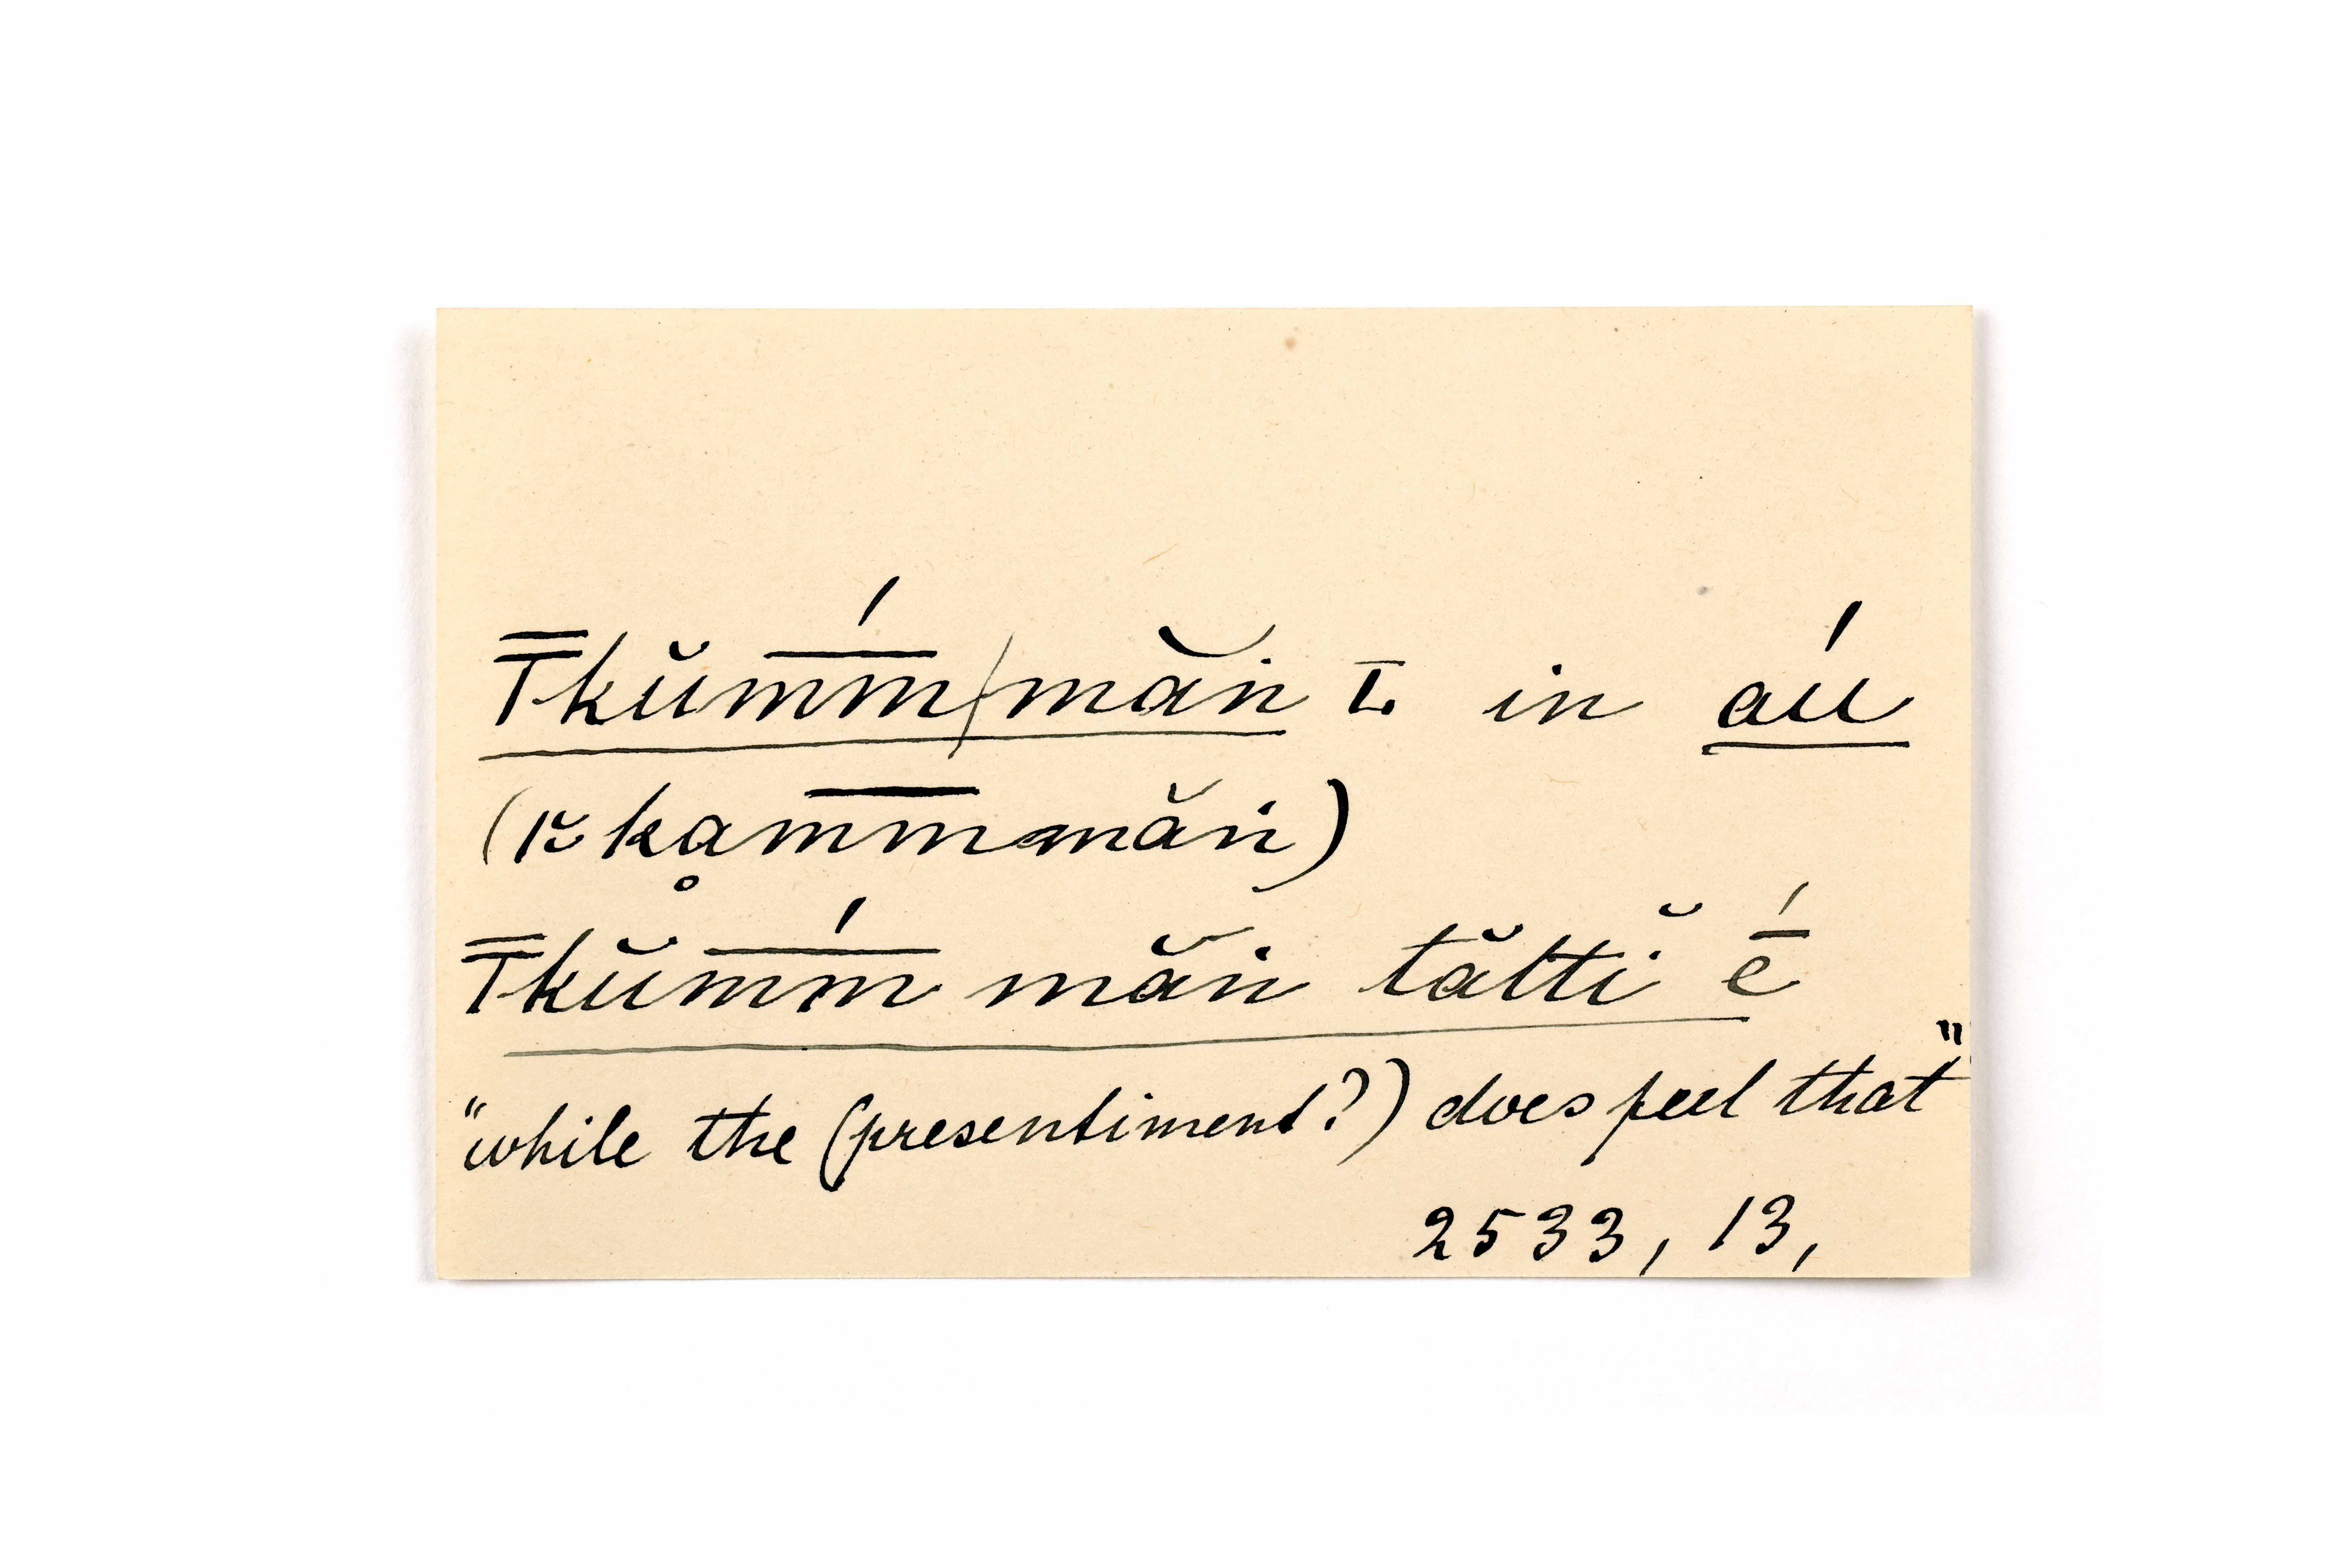 T̿kŭm̅́m/măn I. in aú
(!k̆ḁm̅mmăn)
T̿kŭm̅́m măn tăttĭ ḗ
"while the (presentiment?) does feel that"
2533, 13,